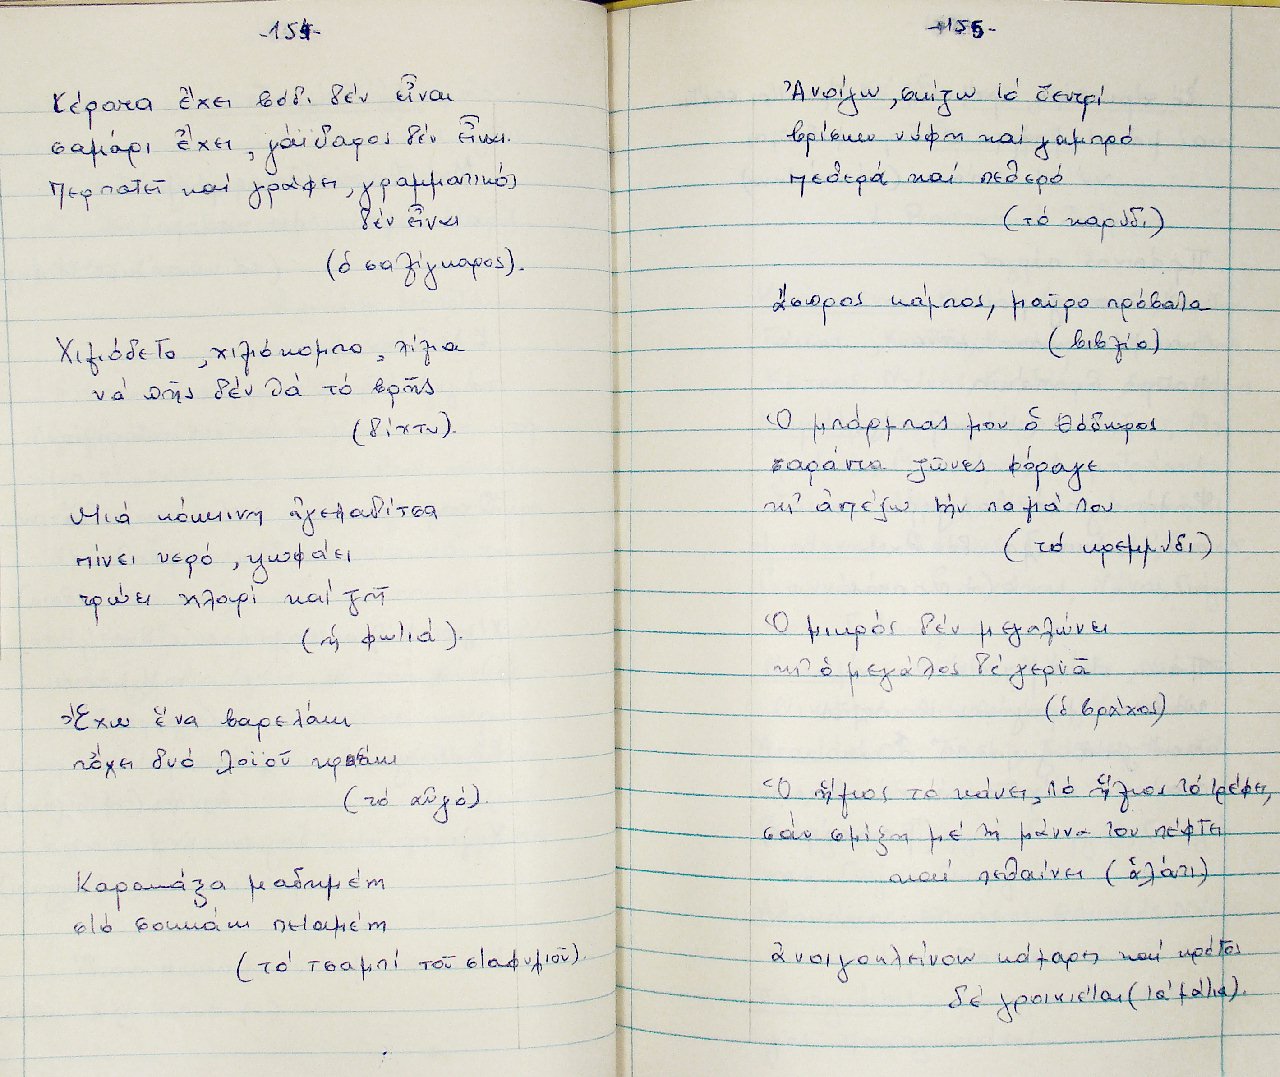 -154-
Κέρατα ἔχει βόδι δέν εἶναι
σαμάρι ἔχει, γάϊδαρος δέν εἶναι.
Περπατεῖ καί γράφει, γραμματικός
δέν εἶναι
(ὁ σαλίγκαρος).
Χιλιόδετο, χιλιόκομπο, χίλια
νά πῆς δέν θά τό βρῆς
(δίχτυ).
Μιά κόκκινη ἀγελαδίτσα
πίνει νερό, ψωφάει
τρώει χλωρί καί ζῆ
(ἡ φωτιά).
Ἔχω ἕνα βαρελάκι
πὄχει δυό λοϊοῦ κρασάκι
(τό αὐγό).
Καρακάξα μαδημέη
στό σοκκάκι πεταμέη
(τό τσαμπί τοῦ σταφυλιοῦ).
-155-
Ἀνοίγω, σκίζω τό δεντρί
βρίσκω νύφη καί γαμπρό
πεθερά καί πεθερό
(τό καρύδι)
ἄσπρος κάμπος, μαῦρα πρόβατα
(βιβλίο)
Ὁ μπάρμπας μου ὁ Θόδωρος
σαράντα ζῶνες φόραγε
κι' ἀπέξω τήν παλιά του
(τό κρεμμύδι)
Ὁ μικρός δέν μεγαλώνει
κι' ὁ μεγάλος δέ γερνᾶ
(ὁ βράχος)
Ὁ ἥλιος τό κάνει, τό ἥλιος τό τρέφει,
σάν σμίξη μέ τή μάννα του πέφτει
καί πεθαίνει (ἁλάτι)
ἀνοιγοκλείνουν κάμαρες καί κρότος
δέ γροικιέται (τά μάτια).